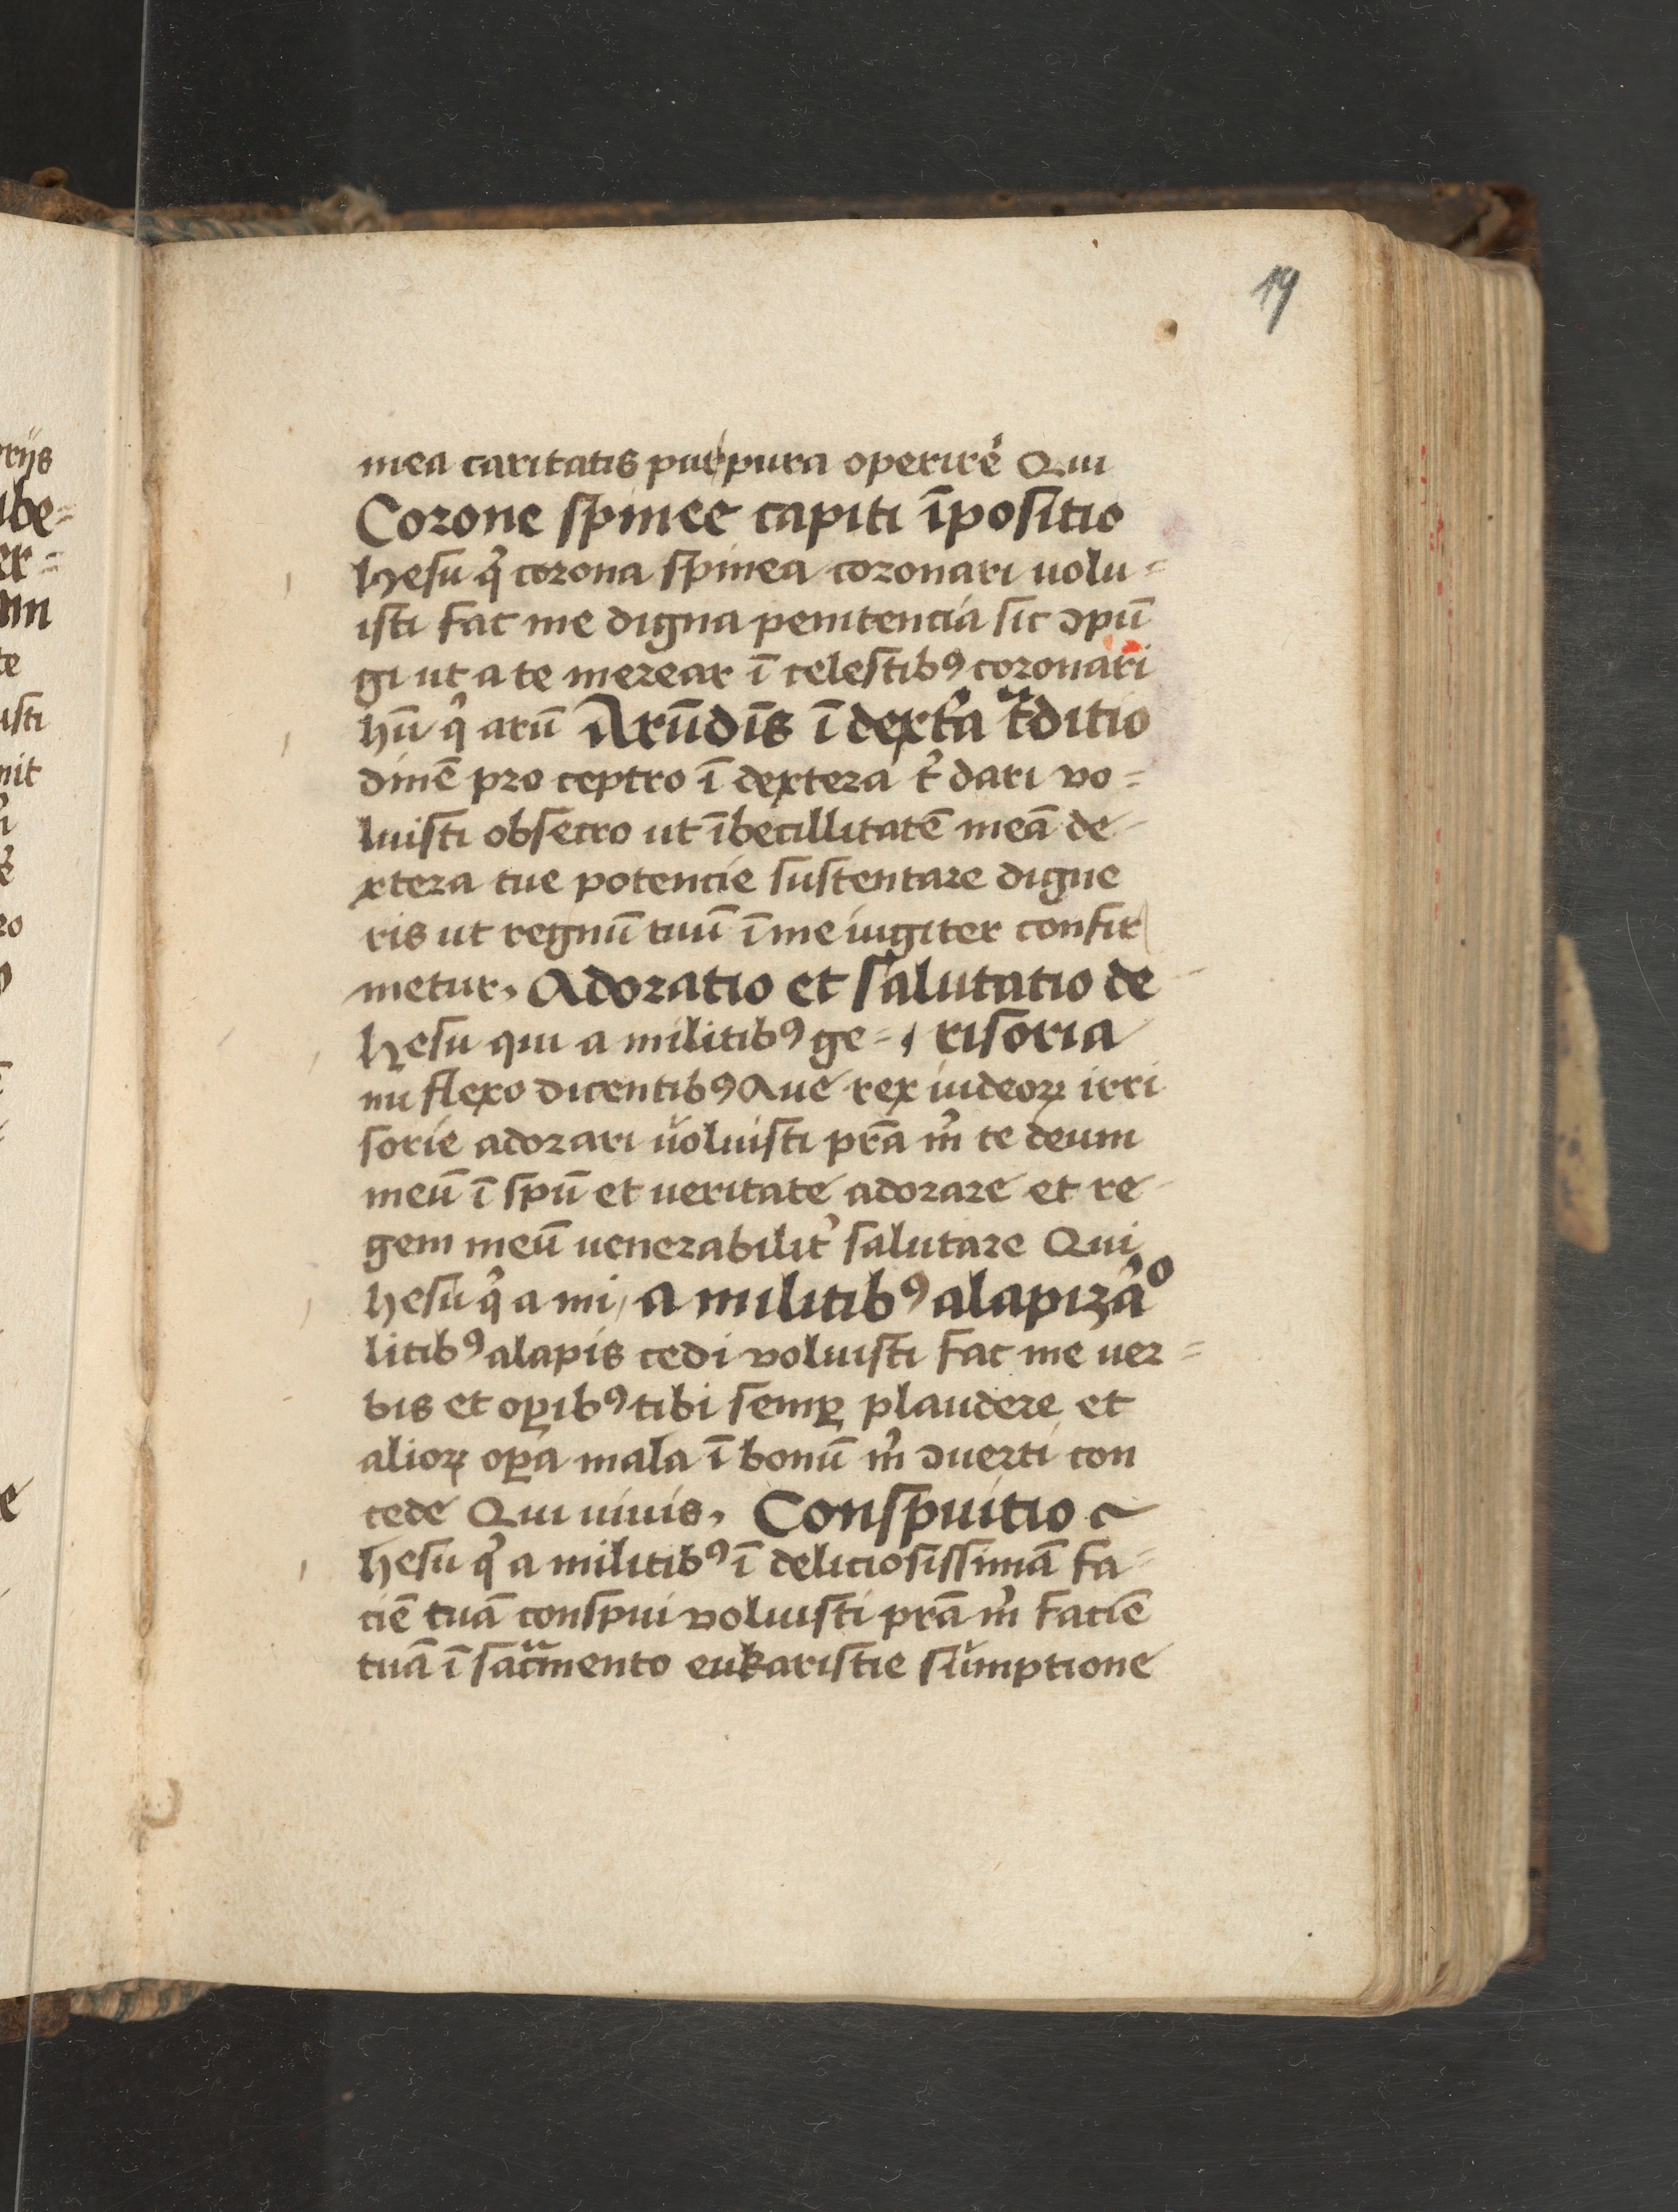 19
mea caritatis purpura operire Qui
Corone spinee capiti īpositio
hesu qͥ corona spinea coronari uolu=
isti fac me digna penitencia sic ɔpū
gi ut a te merear ī celestibꝰ coronari
hū qͥ arū Arūdīs ī dext̉a tᷓditio
dinē pro ceptro ī dextera tͥ dari vo=
luisti obsecro ut ībecillitatē meā de
xtera tue potencie sustentare digne
ris ut regnū tuū ī me iugiter confir
metur, Adoratio et salutatio de
hesu qui a militibꝰ ge= risoria
nu flexo dicentibꝰ Aue rex iudeoꝝ irri
sorie adorari voluisti prā mͥ te deum
meū ī spū et ueritate adorare et re
gem meū uenerabilit̉ salutare Qui
hesu qͥ a mi, a militibꝰ alapizāͦ
litibꝰ alapis cedi voluisti fac me uer=
bis et oꝑibꝰ tibi semꝑ plaudere et
alioꝝ oꝑa mala ī bonū mͥ ɔuerti con
cede Qui uiuis, Conspuitio
hesu qͥ a militibꝰ ī deliciosissimā fa=
ciē tuā conspui voluisti prā mͥ faciē
tuā ī sacᷓmento eukaristie sumptione